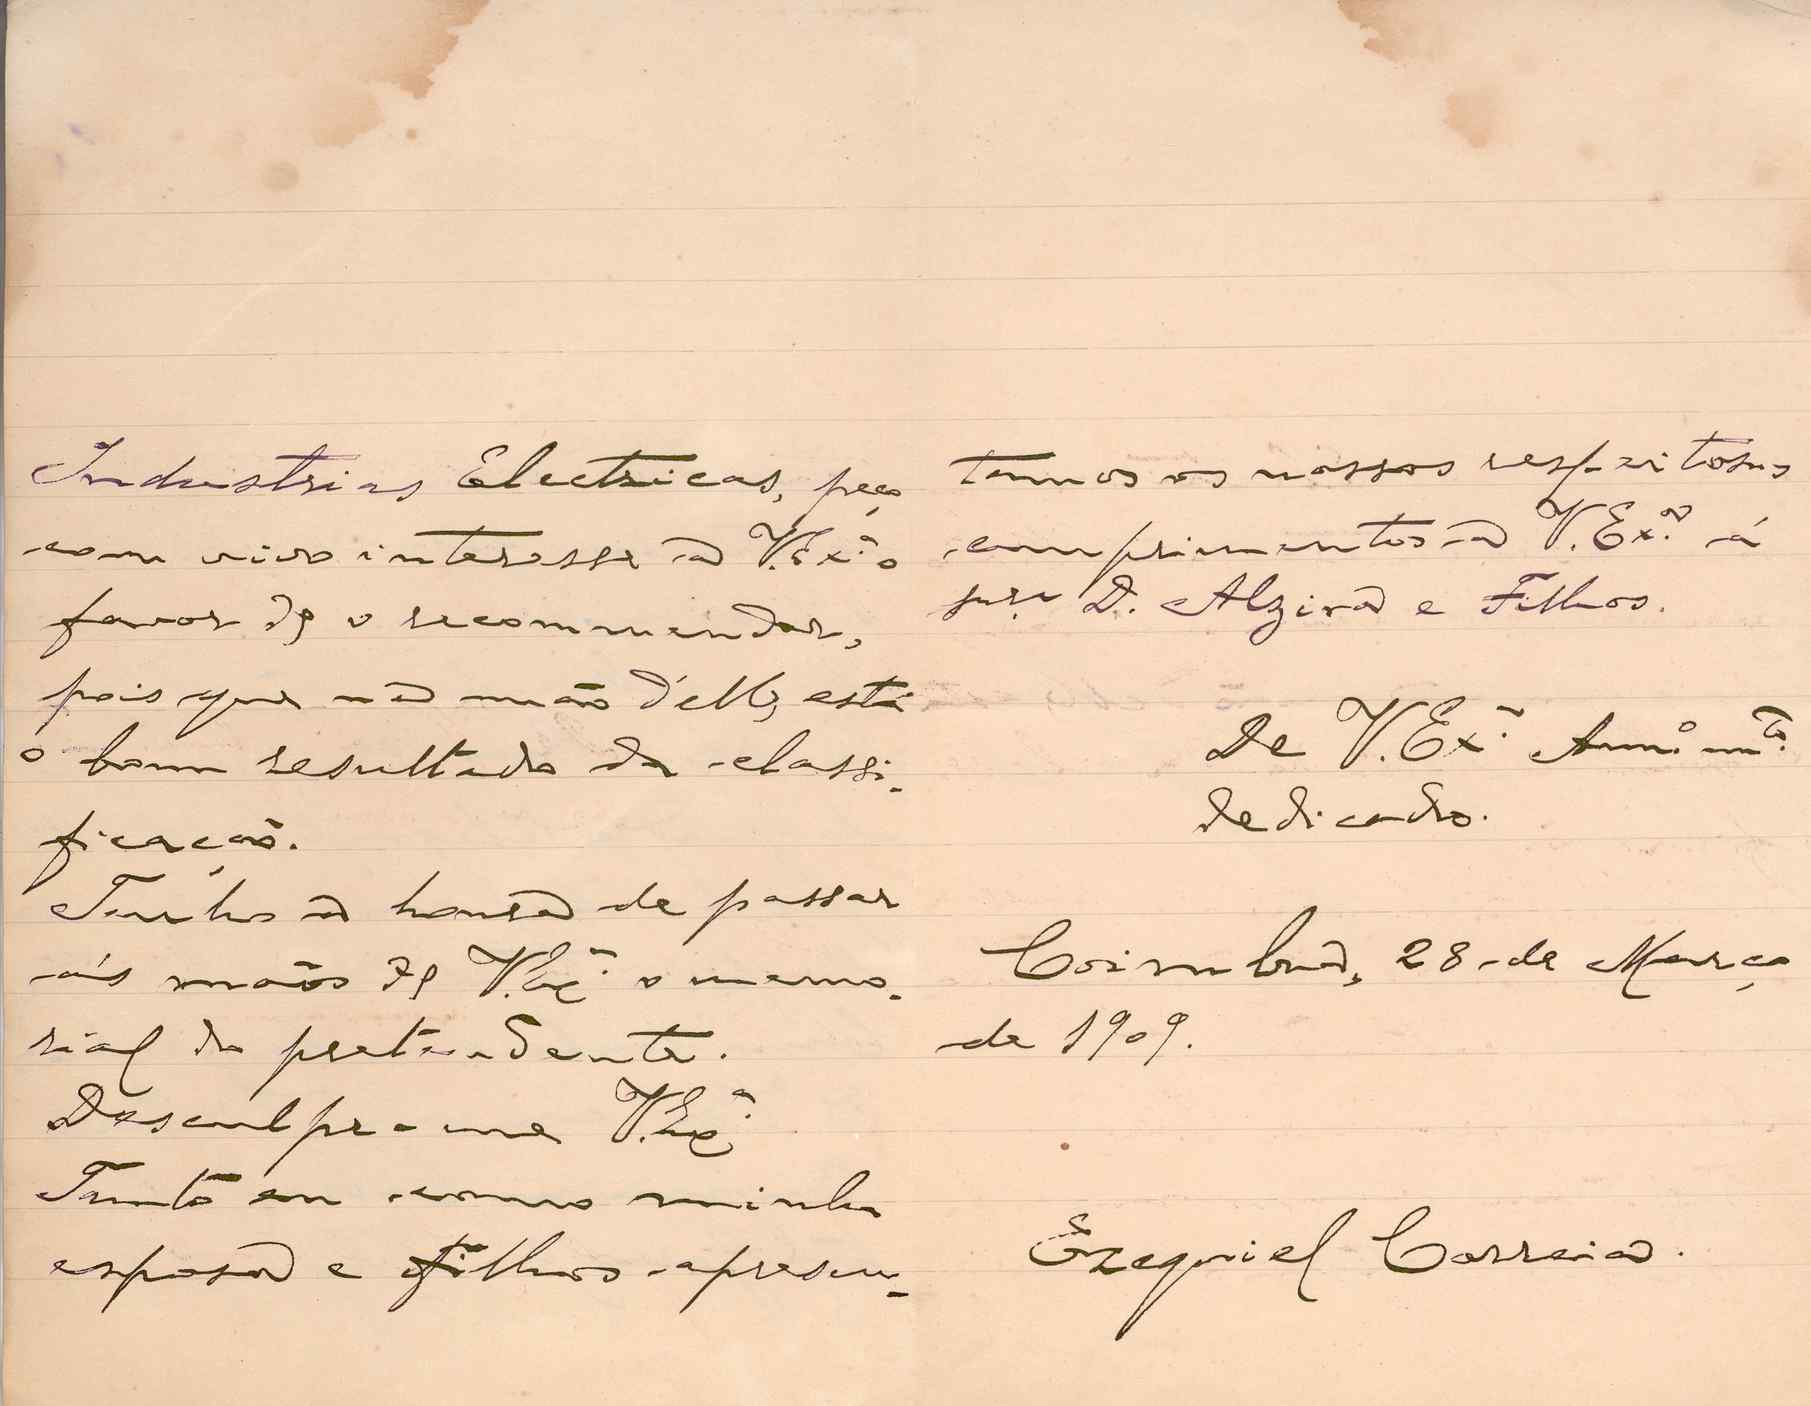 Industrias Electricas, peço
com vivo interesse a V. Exª o
favor de o recommendar,
pois que na mão d'elle, está
o bom resultado da classi-
ficação.
Tenho a honra de passar
ás mãos de V. Exª o memo-
rial do pretendente.
Desculpe-me V. Exª
Tanto eu como minha
esposa e Filhos apresen-
tamos os nossos respeitosos
comprimentos a V. Exª á
D. Alzira e Filhos.
De V. Exª Amº mtº
dedicado.
Coimbra, 28 de Março
de 1909.
Ezequiel Correia.